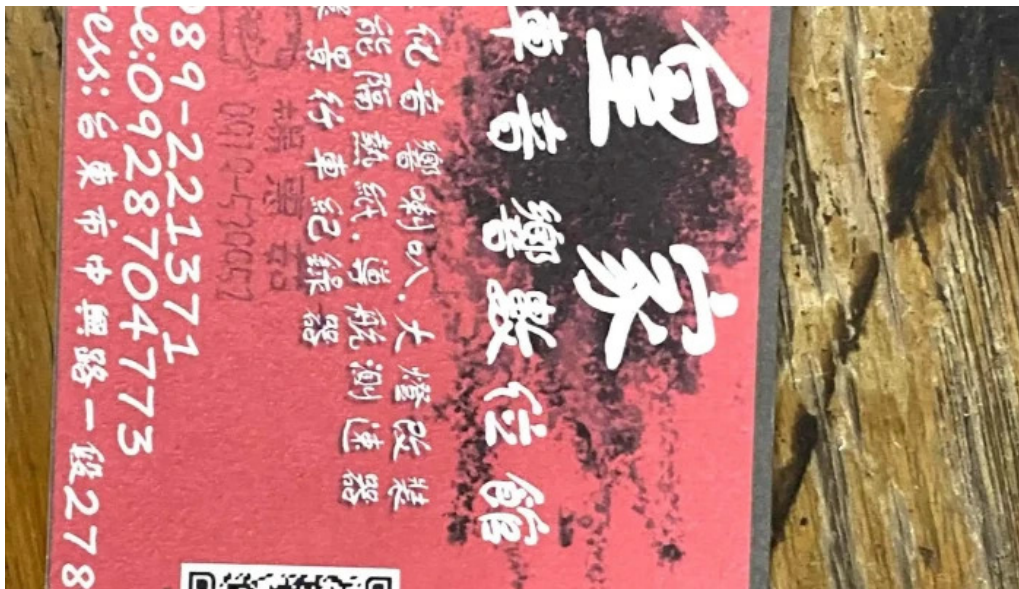 皇家
車音響數位館
化音響喇叭.大燈改裝
能隔熱紙.導航測速器
景行車紀錄器
089-221371
le:0928704773
ress:台東市中興路一段278